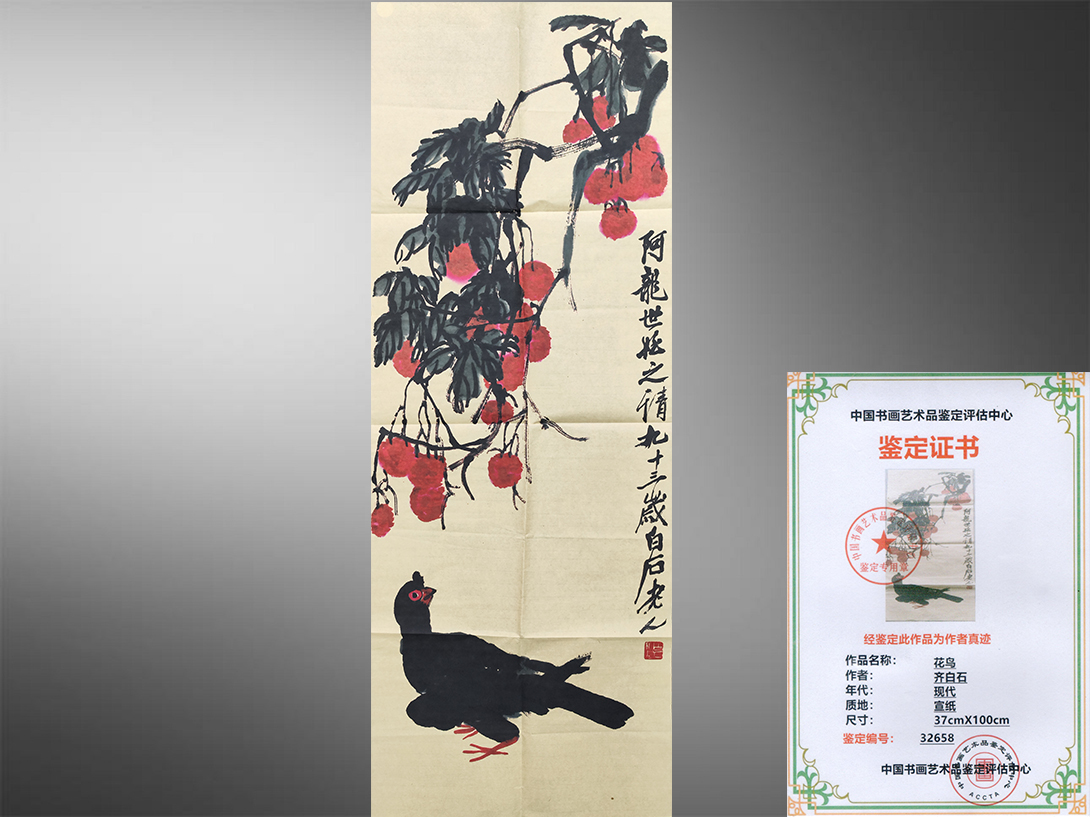 阿龍世姪之請九十三歲白石老人
中国书画艺术品鉴定评估中心
鉴定证书
鉴定专用章
经鉴定此作品为作者真迹
作品名称： 花鸟
作者： 齐白石
年代： 现代
质地： 宣纸
尺寸： 37cmX100cm
鉴定编号： 32658
中国书画艺术品鉴定评估中心
ACCTA